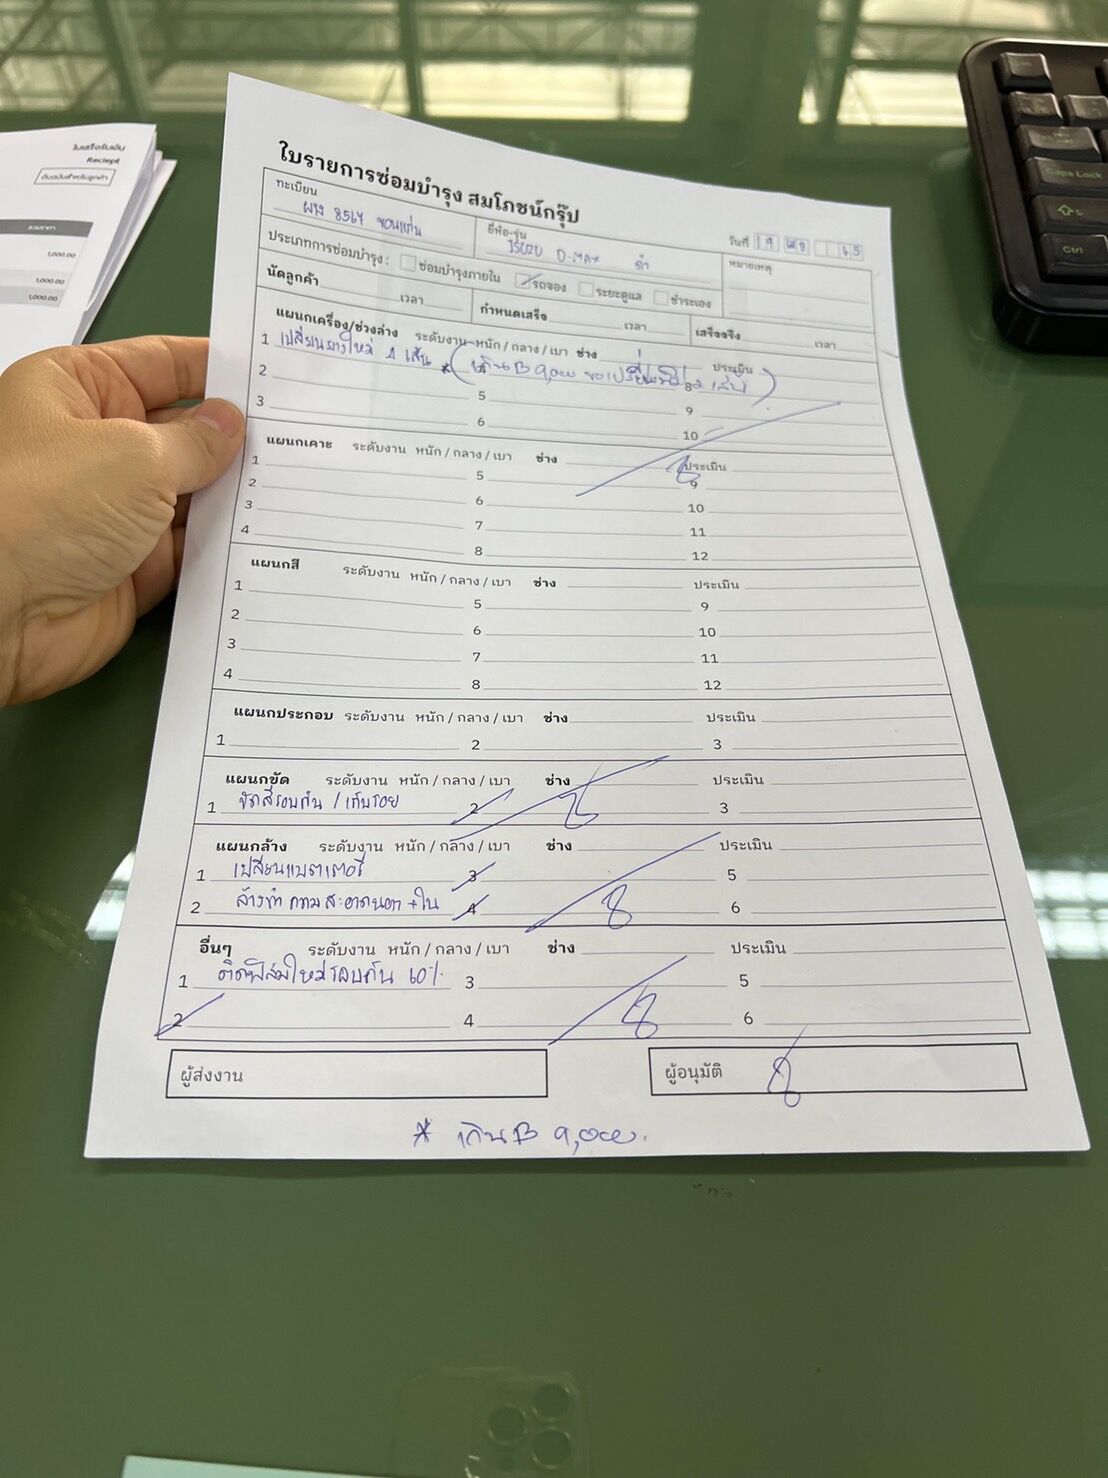 ใบเสร็จรับเงิน
Reciept
ต้นฉบับสำหรับลูกค้า
1,000.00
1,000.00
1,000.00
Caps Lock
Ctrl
ใบรายการซ่อมบำรุง สมโภชน์กรุ๊ป
ทะเบียน 8564 ขอนแก่น ยี่ห้อ-รุ่น ISUZU D-MAX ดำ วันที่ 19 65
ประเภทการซ่อมบำรุง : ซ่อมบำรุงภายใน รถจอง ระยะดูแล ชำระเอง หมายเหตุ
นัดลูกค้า เวลา กำหนดเสร็จ เวลา เสร็จจริง เวลา
แผนกเครื่อง/ช่วงล่าง ระดับงาน หนัก / กลาง / เบา ช่าง ประเมิน
1 เปลี่ยนยางใหม่ 4 เส้น * (เกิน B 9,000 2 เส้น)
2 5 8
3 6 9
10
แผนกเคาะ ระดับงาน หนัก / กลาง / เบา ช่าง ประเมิน
1 5 9
2 6 10
3 7 11
4 8 12
แผนกสี ระดับงาน หนัก / กลาง / เบา ช่าง ประเมิน
1 5 9
2 6 10
3 7 11
4 8 12
แผนกประกอบ ระดับงาน หนัก / กลาง / เบา ช่าง ประเมิน
1 2 3
แผนกขัด ระดับงาน หนัก / กลาง / เบา ช่าง ประเมิน
1 ขัดสีรอบคัน / เก็บรอย 2 3
แผนกล้าง ระดับงาน หนัก / กลาง / เบา ช่าง ประเมิน
1 เปลี่ยนแบตเตอรี่ 3 5
2 ล้างทำความสะอาดนอก + ใน 4 6
อื่นๆ ระดับงาน หนัก / กลาง / เบา ช่าง ประเมิน
1 ติดฟิล์มใหม่รอบคัน 60% 3 5
2 4 6
ผู้ส่งงาน ผู้อนุมัติ
* เกิน B 9,000.